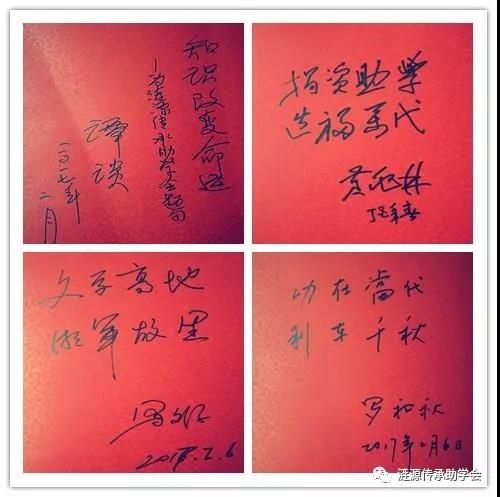 知识改变命运
—为涟源传承助学会题句
谭谈
二〇一七年
二月
捐资助学
造福万代
丁酉年春
文学高地
湘军故里
功在當代
利在千秋
罗和秋
2017年2月6日
涟源传承助学会